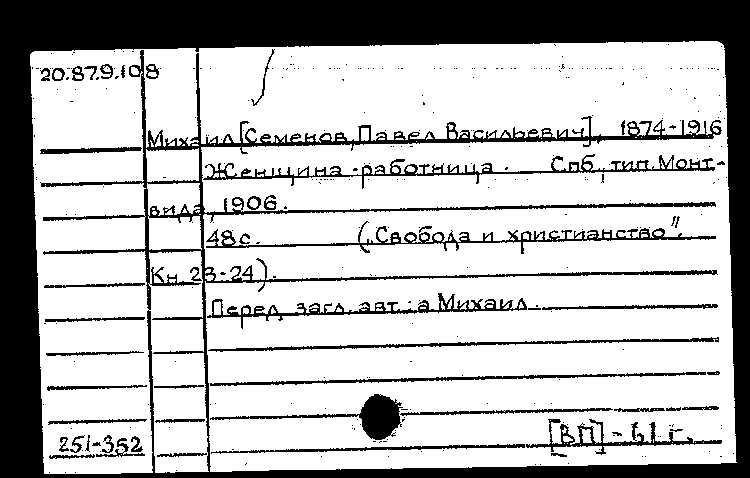 20.87.9.108
Михаил [Семенов, Павел Васильевич], 1874-1916
Женщина-работница. Спб., тип. Монт-
вида, 1906.
48с. („Свобода и христианство".
Кн. 23-24).
Перед загл. авт.: а Михаил.
251-352 [ВП] - 61 г.